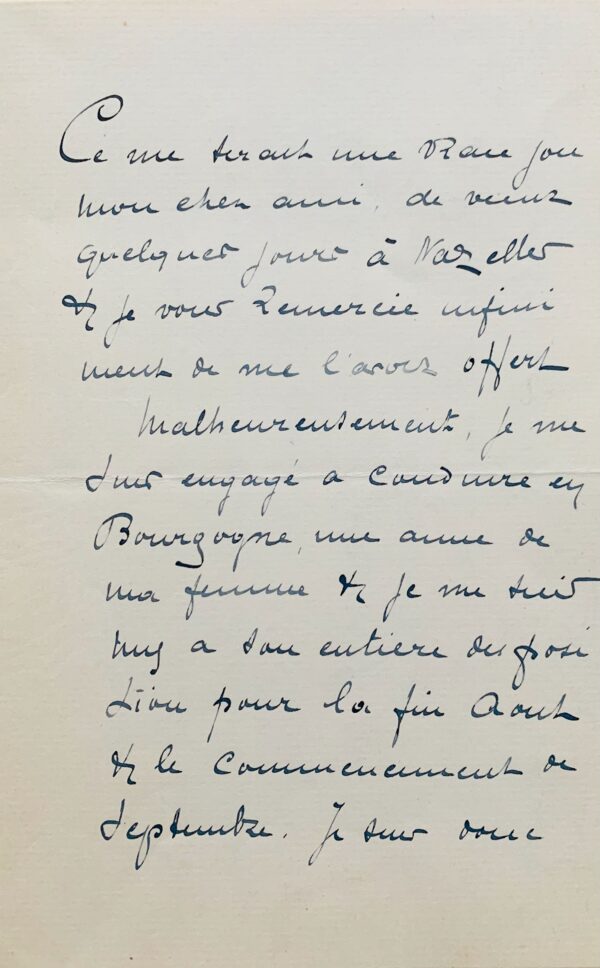 Ce me serait une vraie joie
mon cher ami, de venir
quelques jours à Nazelles
& je vous remercie infini
ment de me l'avoir offert
Malheureusement, je me
suis engagé a conduire en
Bourgogne, une amie de
ma femme & je me suis
mis a son entière disposi
tion pour la fin Aout
& le commencement de
Septembre. Je suis donc